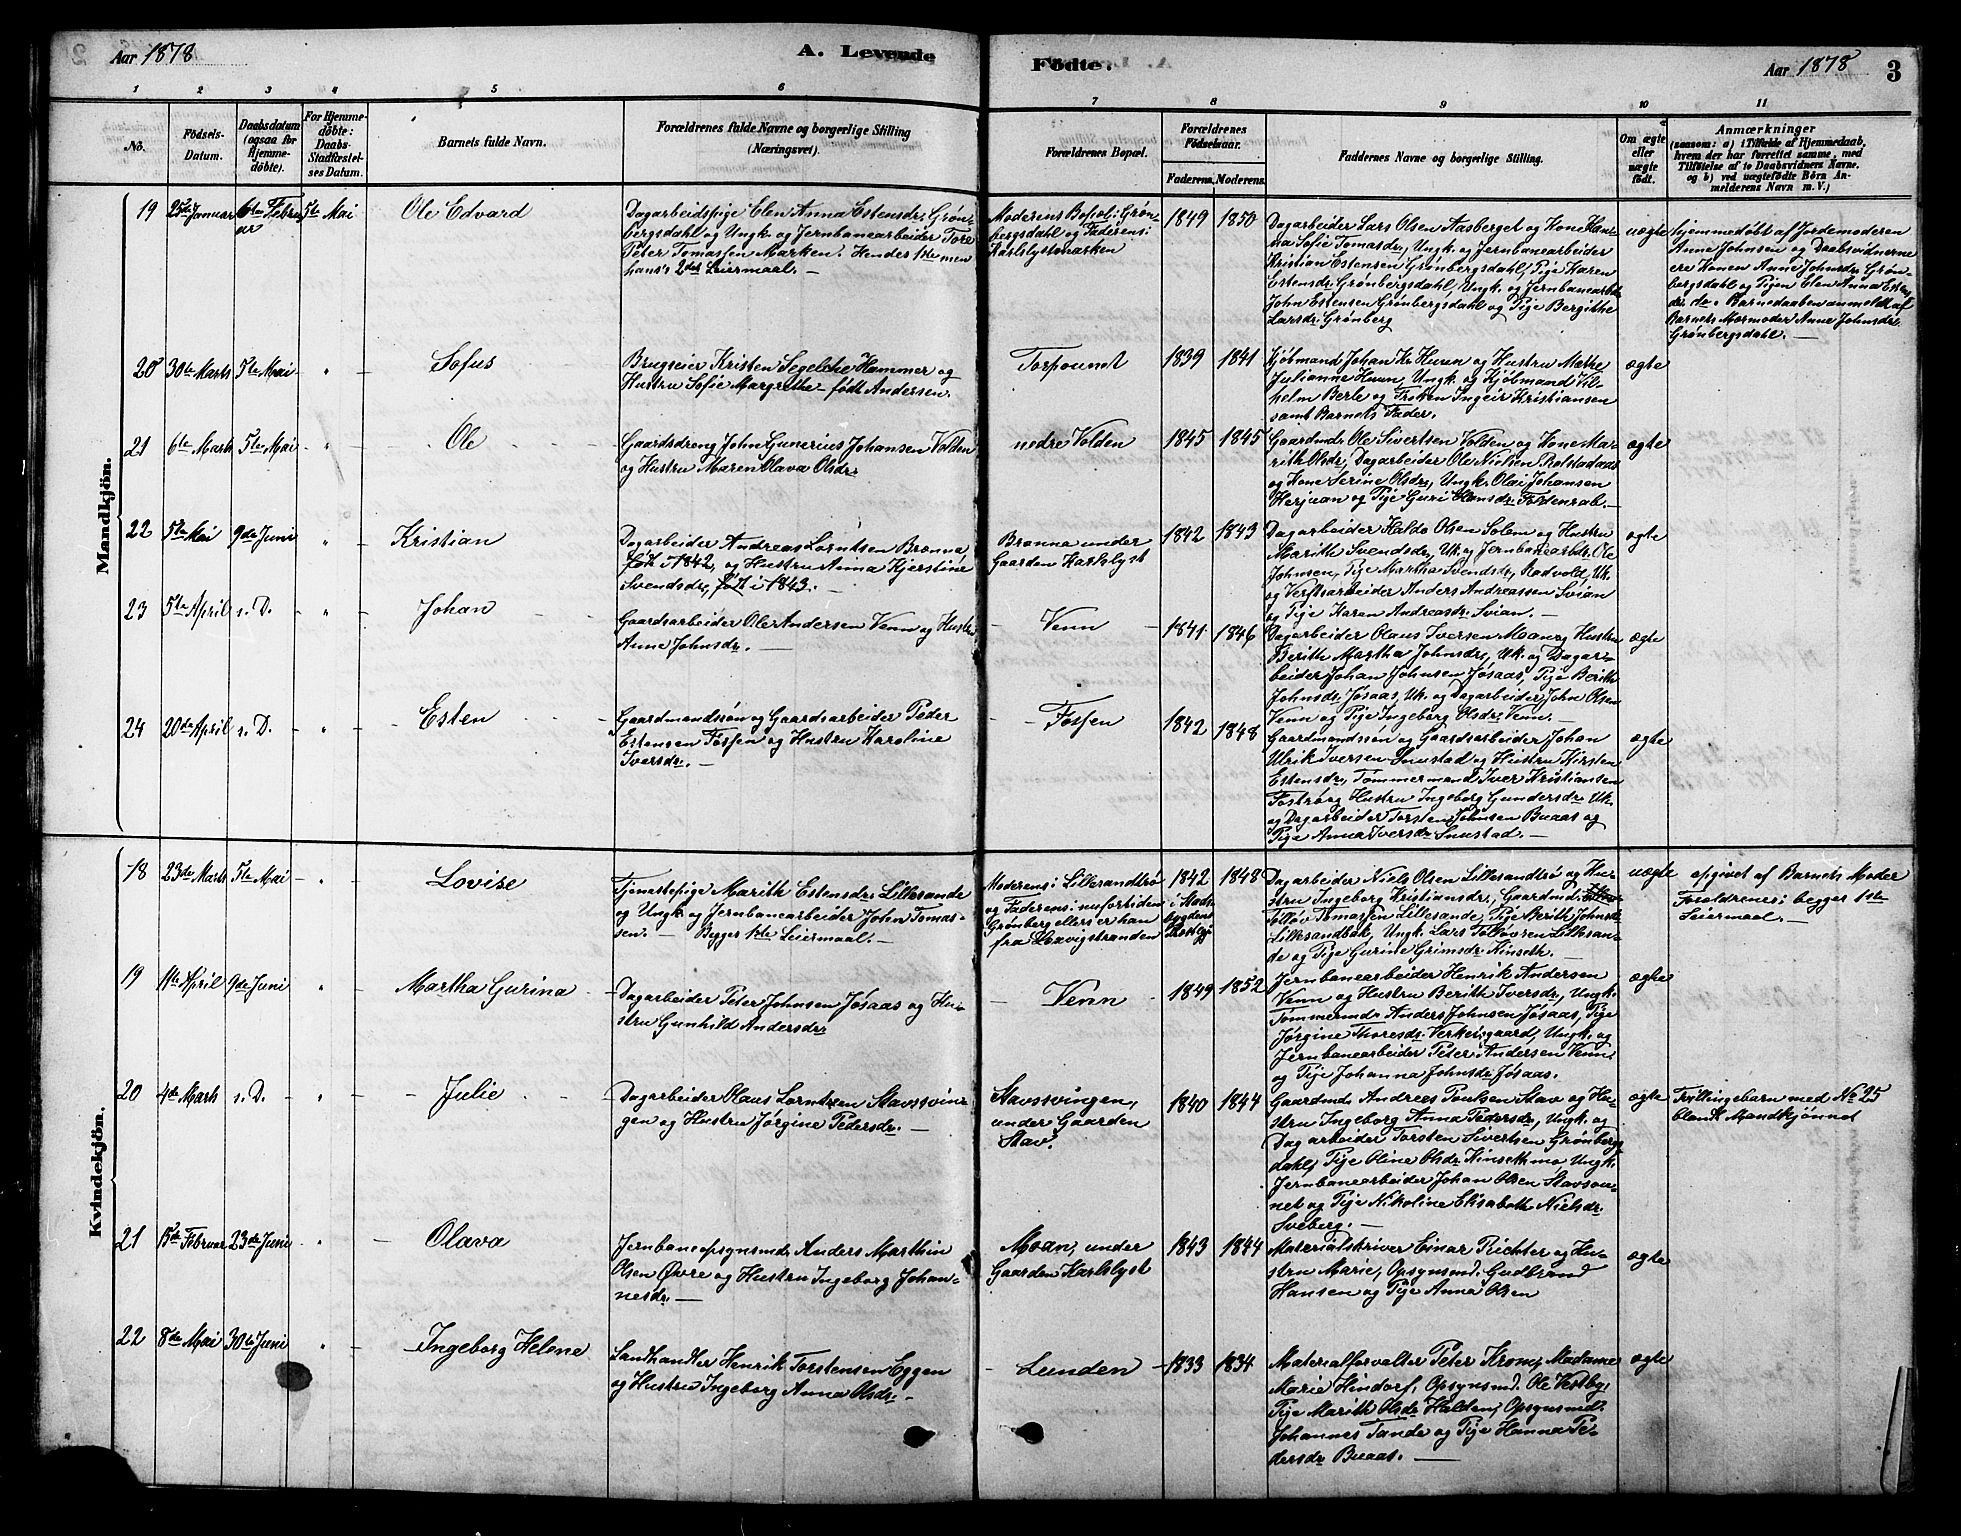 Aar 1878
A. Levende
Födte.
Aar 1878
3
1
2
3
4
5
6
7
8
9
10
11
No.
Födsels-
Datum.
Daabsdatum
(ogsaa for
Hjemme-
döbte).
For Hjemme-
döbte:
Daabs-
Stadfæstel-
ses Datum.
Barnets fulde Navn.
Forældrenes fulde Navne og borgerlige Stilling
(Næringsvei).
Forældrenes Bopæl.
Forældrenes
Födselsaar.
Faderens.
Moderens.
Faddernes Navne og borgerlige Stilling.
Om ægte
eller
uægte
født.
Anmærkninger
(saasom: a) i Tilfælde af Hjemmedaab,
hvem der har forrettet samme, med
Tilföielse af to Daabsvidners Navne.
og b) ved uægtefödte Börn An-
melderens Navn m. V.)
Mandkjön.
19
25de Januar
6te Febru
ar
5te Mai
Ole Edvard
Dagarbeidspige Elen Anna Estensdr. Grøn-
bergsdahl og Ungk. og Jernbanearbeider Tore
Peter Tomassen Marken. Hendes 1ste men
hans's 2det Leiermaal. —
Moderens Bopæl: Grøn-
bergsdahl og Faderens:
Karlslystmarken
1849
1850
Dagarbeider Lars Olsen Aasberget og Kone Han-
na Sofie Tomasdr., Ungk. og Jernbanearbeider
Kristian Estensen Grønbergsdahl, Pige Karen
Estensdr. Grønbergsdahl, Ungk. og Jernbanearb.
John Estensen Grønbergsdahl og Pige Bergithe
Larsdr. Grønberg
uægte
hjemmedøbt af Jordemoderen
Anne Johnsen og Daabsvidnerne
ere Konen Anne Johnsdr. Grøn-
bergsdahl og Pigen Elen Anna Estens
dr. do. Barnedaaben anmeldt af
Barnets Mormoder Anne Johnsdr.
Grønbergsdahl. —
20
30te Marts
5te Mai
"
Sofus
Brugseier Kristen Segelche Hammer og
Hustru Sofie Margrethe født Andersen.
Torpountt
1839
1841
Kjøbmand Johan Kr Huun og Hustru Mæthe
Julianne Huun, Ungk. og Kjøbmand Vil-
helm Berle og Frøken Ingeir Kristiansen
samt Barnets Fader.
ægte
21
6te Marts
5te Mai
"
Ole
Gaardsdreng John Gunerius Johansen Volden
og Hustru Maren Olava Olsdr.
nedre Volden
1845
1845
Gaardmd. Ole Sivertsen Volden og Kone Ma-
rith Olsdr., Dagarbeider Ole Nielsen Rolstadaas
og Kone Serine Olsdr., Ungk. Olai Johansen
Herjuan og Pige Guri Hansdr. Fordenrab. —
ægte
22
5te Mai
9de Juni
"
Kristian
Dagarbeider Andreas Lorntsen Brønna,
født i 1842, og Hustru Anna Kjerstine
Svendsdr., født i 1843. —
Brønna under
Gaarden Karlslyst
1842
1843
Dagarbeider Haldo Olsen Solem og Hustru
Marith Svendsdr., Uk. og Jernbanearbdr. Ole
Johnsen, Pige Martha Svendsdr. Rødvold, Uk.
og Verftsarbeider Anders Andreassen Svian
og Pige Karen Andreasdr. Svian. —
ægte
23
5te April
s. D.
"
Johan
Gaardsarbeider Ole Andersen Venn og Hustru
Anne Johnsdr. —
Venn
1841
1846
Dagarbeider Olaus Iversen Moan og Hustru
Berith Martha Johnsdr., Uk. og Dagar-
beider Johan Johnsen Jøsaas, Pige Berith
Johnsdr. Jøsaas, Uk. og Dagarbeider John Olsen
Venn og Pige Ingeborg Olsdr. Venn. —
ægte
24
20de April
s. D.
"
Esten
Gaardmandssøn og Gaardsarbeider Peder
Estensen Fossen og Hustru Karoline
Iversdr. —
Fossen
1842
1848
Gaardmandssøn og Gaardsarbeider Johan
Ulrik Iversen Snustad og Hustru Kirsten
Estensdr., Tømmermand Iver Kristiansen
Fostrø og Hustru Ingeborg Gundersdr. Uk.
og Dagarbeider Torsten Johnsen Buaas og
Pige Anna Iversdr. Snustad. —
ægte
Kvindekjön.
18
23de Marts
5te Mai
"
Lovise
Tjenestepige Marith Estensdr. Lillesande
og Ungk. og Jernbanearbeider John Tomas-
sen. — Begges 1ste Leiermaal. —
Moderens i Lillesandtrø
og Faderens: nufortiden
Grønberg ellers er han
fra Leavigstranden
1842
i Mads-
bygdens
Præstegj
1848
Dagarbeider Niels Olsen Lillesandtrø og Hu-
stru Ingeborg Kristiansdr., Gaardmd.
Tomassen Lillesande, Pige Merith Johnsdr.
Lillesandbak, Ungk. Lars Tolløvsen Lillesan-
de og Pige Gurine Grimsdr. Kinseth. —
uægte
opgivet af Barnets Moder
Forældrenes: begges 1ste
Leiermaal. —
19
11te April
9de Juni
"
Martha Gurina
Dagarbeider Peter Johnsen Jøsaas og Hu-
stru Gunhild Andersdr.
Venn
1849
1852
Jernbanearbeider Henrik Andersen
Venn og Hustru Berith Iversdr., Ungk.
Tømmermd. Anders Johnsen Jøsaas, Pige
Jørgine Thoresdr. Verkesgaard, Ungk. og
Jernbanearbeider Peter Andersen Venn
og Pige Johanna Johnsdr. Jøsaas.
ægte
20
4de Marts
s. D.
"
Julie
Dagarbeider Olaus Lorntzen Stavssvin-
gen og Hustru Jørgine Pedersdr. —
Stavssvingen,
under Gaarden
Stav.
1840
1844
Gaardmd. Andreas Paulsen Stav og Hu-
stru Ingeborg Anna Pedersdr., Ungk. og
Dagarbeider Torsten Sivertsen Grønbergs
dahl, Pige Oline Olsdr. Kinsethmo Ungk.
Jernbanearbeider Johan Olsen Stavsou-
net og Pige Nikoline Elisabeth Nielsdr.
Sveberg. —
ægte
Tvillingebarn med No 25
blandt Mandkjønnet
21
15de Februar
23de Juni
"
Olava
Jernbaneopsynsmd. Anders Marthin
Olsen Øvre og Hustru Ingeborg Johan-
nesdr. —
Moan, under
Gaarden Karlslyst
1843
1844
Materialskriver Einar Richter og Hu-
stru Marie, Opsynsmd. Gudbrand
Hansen og Pige Anna Olsen
ægte
22
8de Mai
30te Juni
"
Ingeborg Helene
Landhandler Henrik Torstensen Eggen
og Hustru Ingeborg Anna Olsdr. —
Lunden
1833
1834
Materialforvalter Peter Krom, Madame
Marie Hindorf, Opsynsmd. Ole Vestby,
Pige Marith Olsdr. Halden, Opsynsmd.
Johannes Tande og Pige Hanna Pe-
dersdr. Buaas. —
ægte